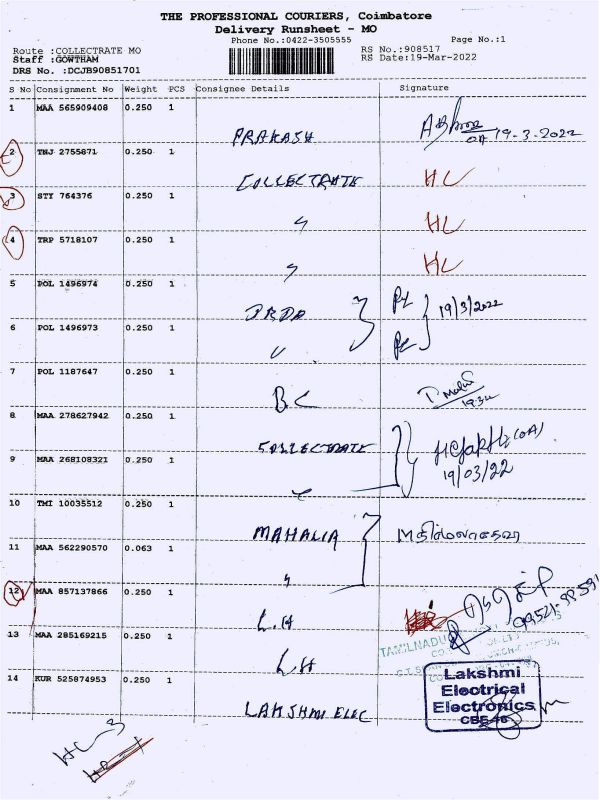 THE PROFESSIONAL COURIERS, Coimbatore
Delivery Runsheet - MO
Phone No.:0422-3505555
Page No.:1
Route :COLLECTRATE MO
RS No.:908517
Staff :GOWTHAM
RS Date:19-Mar-2022
DRS No. :DCJB90851701
S No Consignment No Weight PCS Consignee Details Signature
1 MAA 565909408 0.250 1
PRAKASH 19-3-2022
2 TNJ 2755871 0.250 1
COLLECTRATE HC
3 STY 764376 0.250 1
" HC
4 TRP 5718107 0.250 1
" HC
5 POL 1496974 0.250 1
DRDA 19/3/2022
6 POL 1496973 0.250 1
"
7 POL 1187647 0.250 1
BC
8 MAA 278627942 0.250 1
COLLECTRATE (OA)
9 MAA 268108321 0.250 1
19/03/22
10 TMI 10035512 0.250 1
MAHALIA
11 MAA 562290570 0.063 1
"
12 MAA 857137866 0.250 1
L.H
13 MAA 285169215 0.250 1
LH
TAMILNADU
14 KUR 525874953 0.250 1
LAKSHMI ELEC
Lakshmi
Electrical
Electronics
HC-3